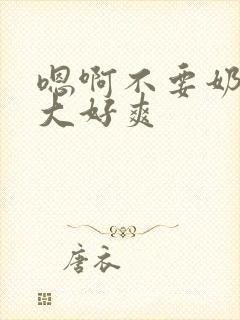 嗯啊不要奶
大好爽
唐衣